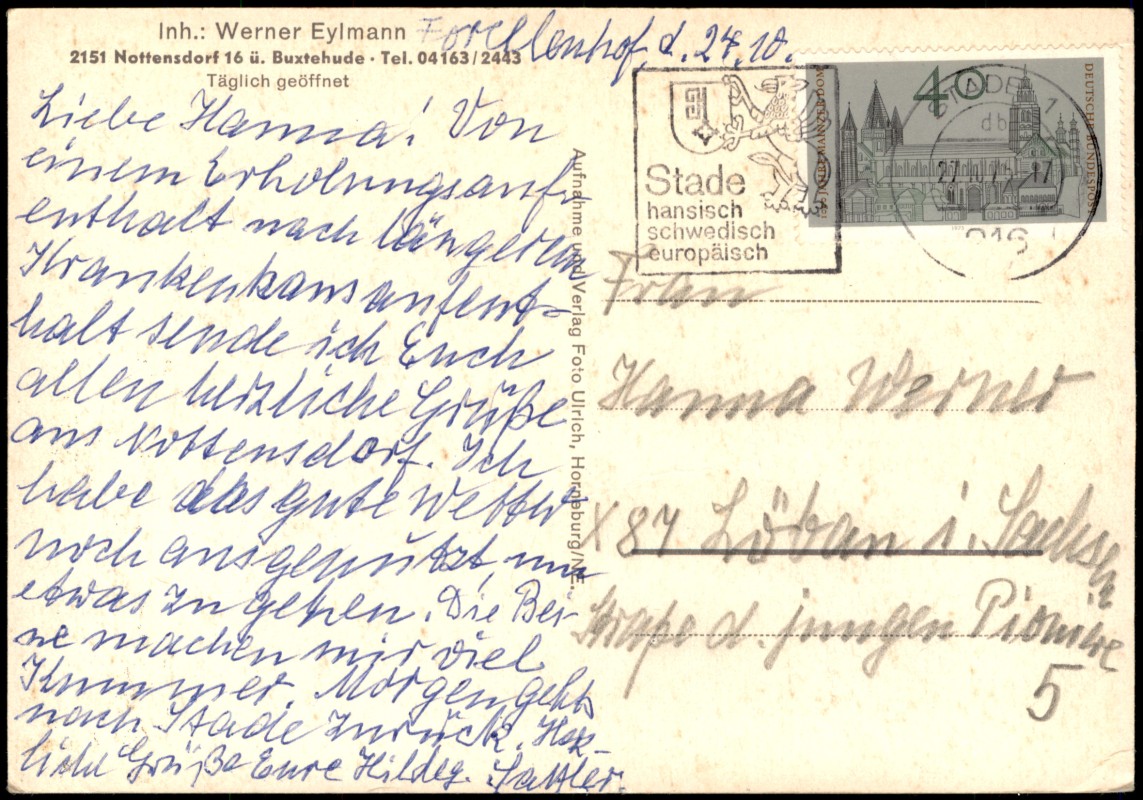 Inh.: Werner Eylmann
2151 Nottensdorf 16 ü. Buxtehude · Tel. 04163/2443
Täglich geöffnet
Forellenhof, d. 27.10.
Liebe Hanna! Von
einem Erholungsauf-
enthalt nach längerem
Krankenhausaufent-
halt sende ich Euch
allen herzliche Grüße
aus Nottensdorf. Ich
habe das gute Wetter
noch ausgenutzt, um
etwas zu gehen. Die Bei-
ne machen mir viel
Kummer. Morgen geht's
nach Stade zurück. Herz-
liche Grüße Eure Hildeg. Sattler.
Aufnahme und Verlag Foto Ulrich, Horneburg/NE.
Stade
hansisch
schwedisch
europäisch
40
DEUTSCHE BUNDESPOST
STADE 1
db
Frau
Hanna Werner
X 87 Löbau i. Sachsen
Straße d. jungen Pioniere
5